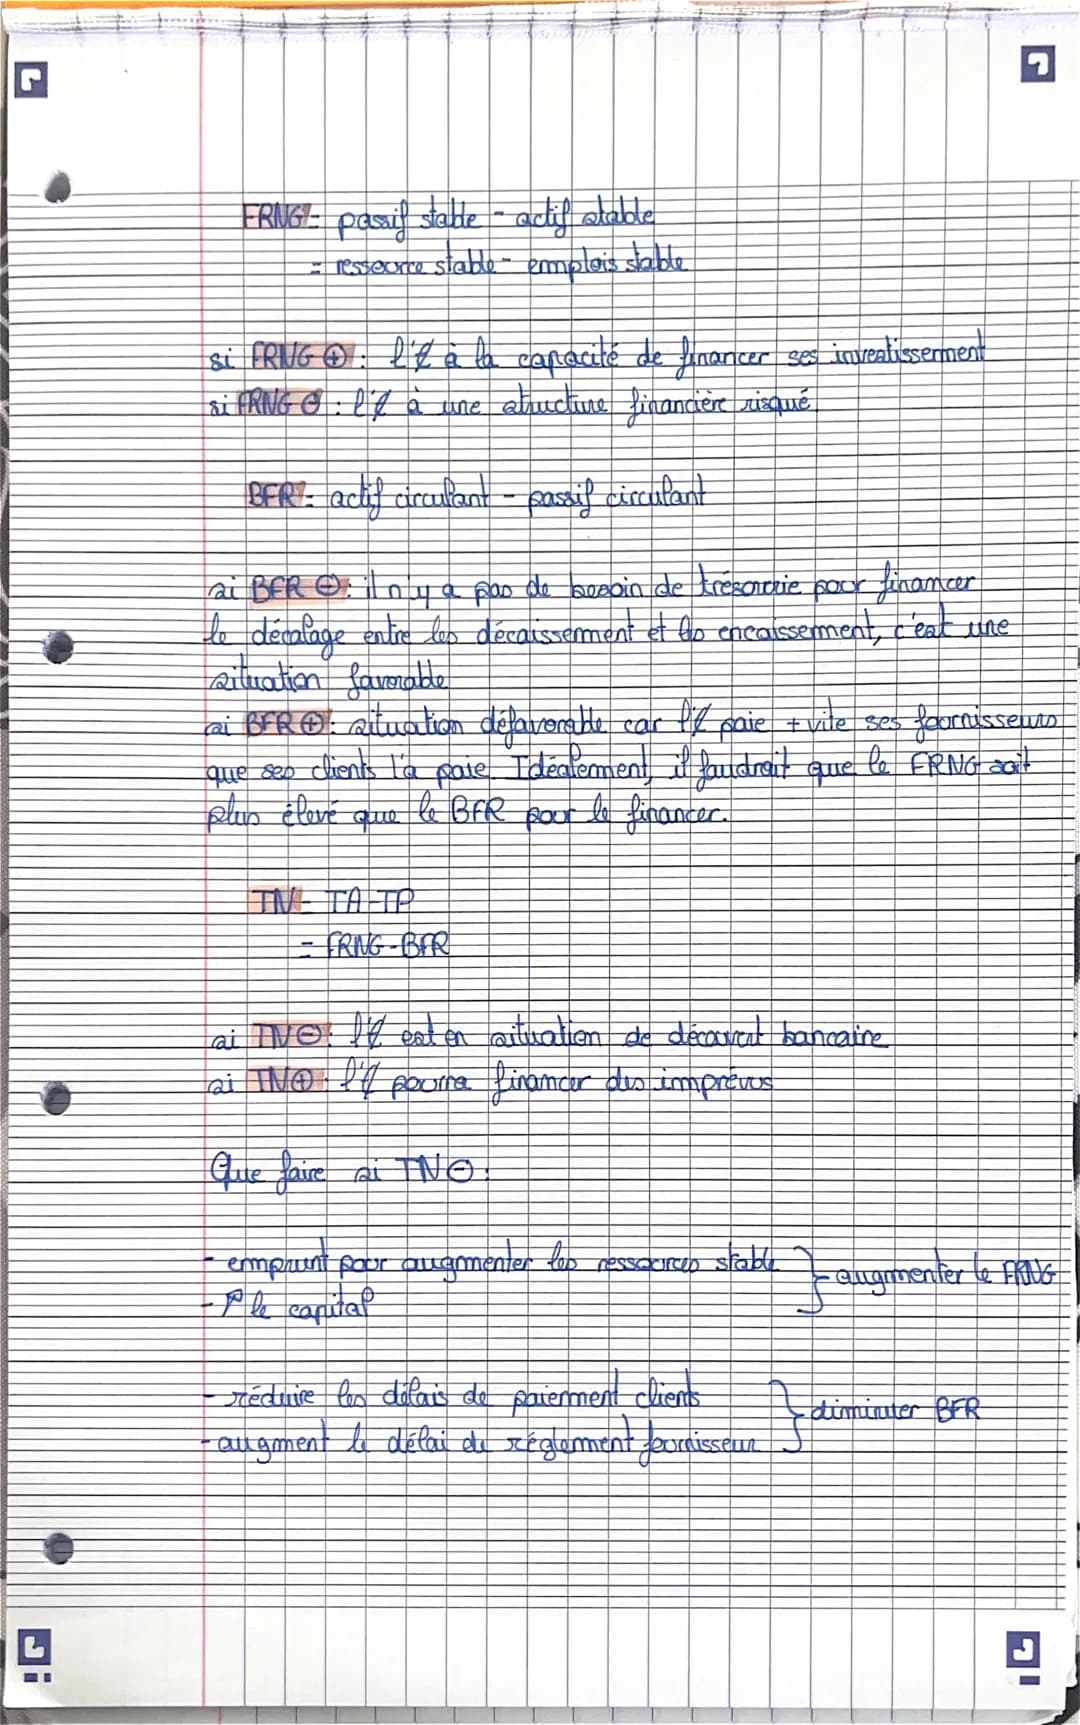 FRNG = passif stable - actif stable
= ressource stable - emplois stable
si FRNG ⊕ : l'E à la capacité de financer ses investissement
si FRNG ⊖ : l'E à une structure financière risqué
BFR = actif circulant - passif circulant
si BFR ⊖ : il n'y a pas de besoin de trésorerie pour financer
le décalage entre les décaissement et les encaissement, c'est une
situation favorable
si BFR ⊕ : situation défavorable car l'E paie + vite ses fournisseurs
que ses clients l'a paie. Idéalement, il faudrait que le FRNG soit
plus élevé que le BFR pour le financer.
TN = TA - TP
= FRNG - BFR
si TN ⊖ : l'E est en situation de découvert bancaire
si TN ⊕ : l'E pourra financer des imprévus
Que faire si TN ⊖ :
- emprunt pour augmenter les ressources stable } augmenter le FRNG
- ↗ le capital
- réduire les délais de paiement clients } diminuer BFR
- augment le délai de règlement fournisseur